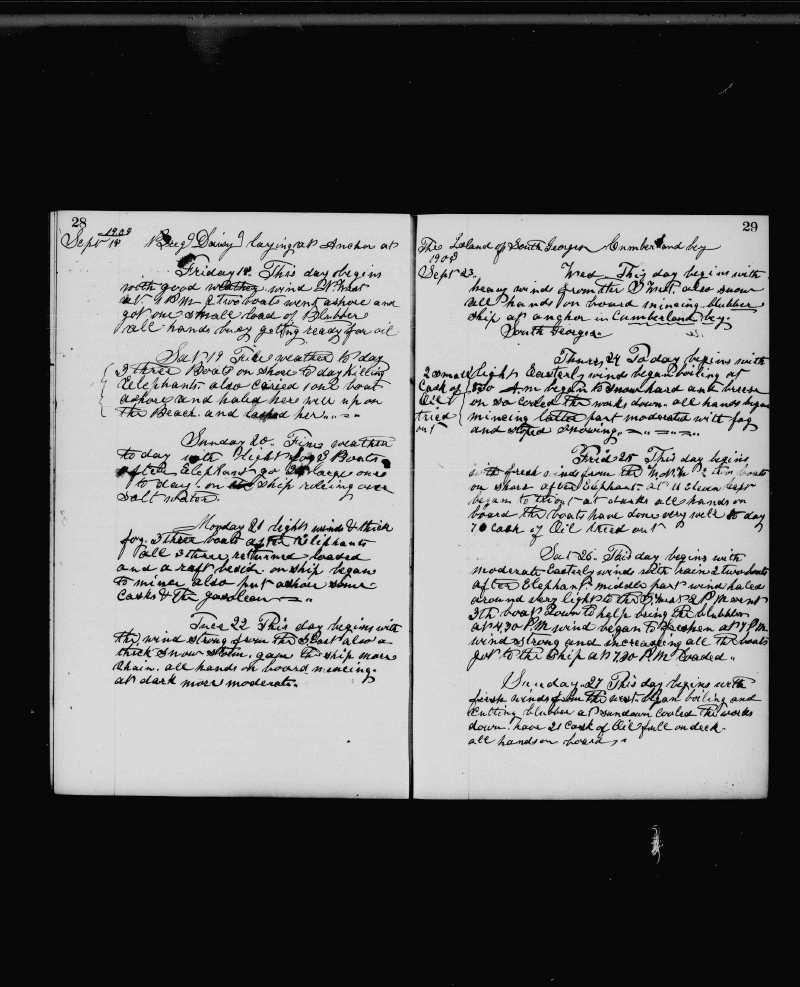 28
1908
Sept 18 Brig Daisy laying at Anchor at
Friday 18. This day begins
with good weather wind N. West
at 9 P M 2 two boats went ashore and
got one small load of Blubber
all hands busy getting ready for oil
Sat 19 Fine weather to day
3 three Boats on shore to day Killing
Elephants. also caried 1 one boat
ashore and haled her well up on
the Beach. and lashed her
Sunday 20. Fine weather
to day with light fog 2 Boats
after Elephant go large ones
to day. on ship
salt water
Monday 21 light winds & thick
fog. 3 three boats after Eliphants
all 3 three returned loaded
and a raft beside on ship began
to mince also put ashore some
casks & the
Tues 22 This day begins with
the wind strong from the also a
thick snow storm. gave the ship more
chain. all hands on board mincing.
at dark more moderate.
29
The Island of South Georgia Cumberland bey
1908
Sept 23. Wed. This day begins with
heavy winds from the also snow
all hands on board mincing blubber
ship at anchor in Cumberland bey.
South Georgia
Thurs, 24 To day begins with
2 small
Cask of
Oil
tried
out
light Easterly winds began boiling at
A.m began to snow hard and breese
on so cooled the works down. all hands began
mincing latter part moderated with fog
and stoped snowing.
Frid 25 This day begins
with fresh winds from the 2 two boats
on shore after Elephant. at 11 Eleven
began to at dark all hands on
board the boats have done very well to day
Cask of Oil tried out
Sat 26. This day begins with
moderate Easterly winds with rain 2 two boats
after Elephant, middle part wind haled
around very light to the 2 P M went
3th boat down to help bring the blubber
at 4,30 P.M wind began to freshen at 7 P.M
wind strong and increasing all the boats
got to the ship at 7,30 P.M loaded.
Sunday. 27 This day begins with
fresh winds from the west. began boiling and
cutting blubber at sundown cooled the works
down. have 21 Cask of Oil full on deck.
all hands on board